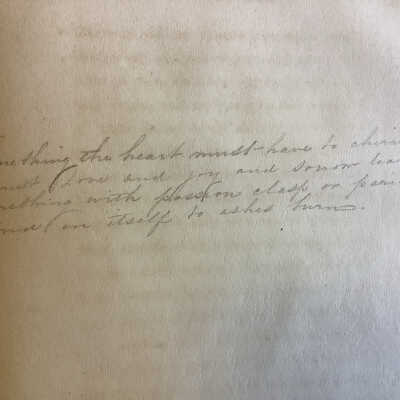 mething the heart must have to cheri
must Love and joy and sorrow lea
mething with passion clasp or peri
nd in itself to ashes burn.